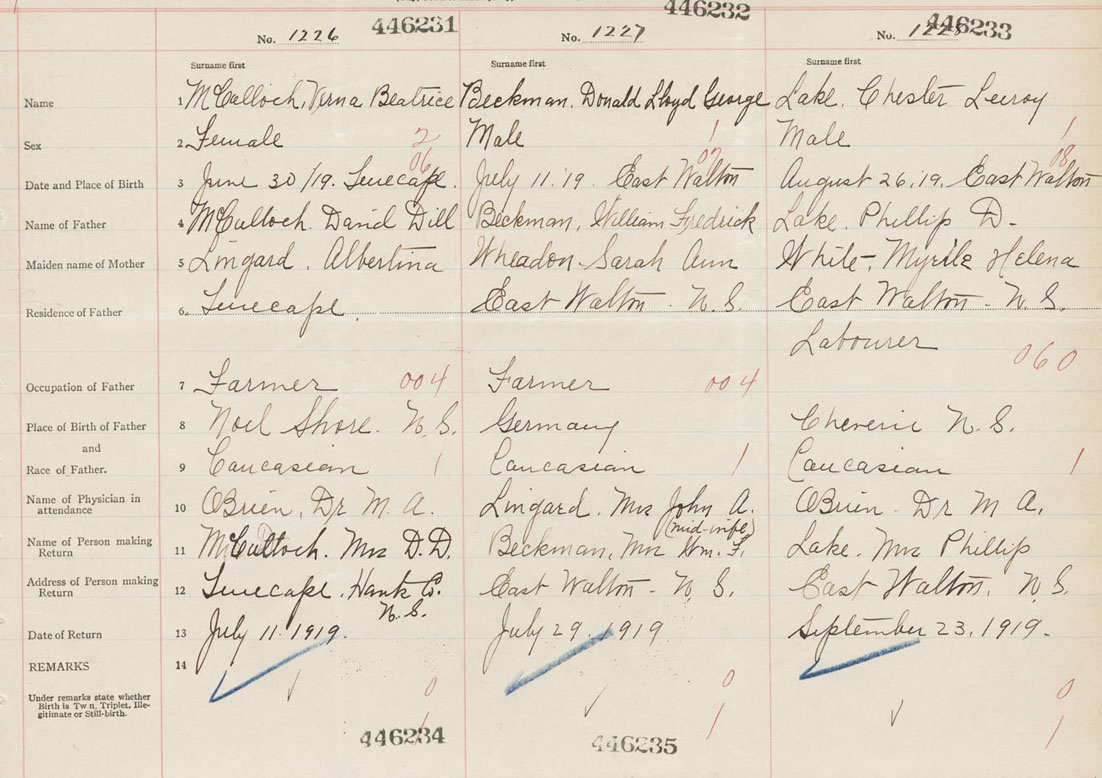 446231 446232 446233
No. 1226 No. 1227 No. 1228
Surname first Surname first Surname first
Name 1 McCulloch, Verna Beatrice Beckman. Donald Lloyd George Lake. Chester Leeroy
Sex 2 Female 2 Male 1 Male 1
06 07 08
Date and Place of Birth 3 June 30/19. Tenecape. July 11. '19. East Walton August 26, '19, East Walton
Name of Father 4 McCulloch. David Dill Beckman, William Fredrick Lake. Phillip D-
Maiden name of Mother 5 Lingard. Albertina Wheadon- Sarah Ann White-, Myrtle Helena
Residence of Father 6. Tenecape. East Walton - N. S. East Walton - N. S.
Labourer 060
Occupation of Father 7 Farmer 004 Farmer 004
Place of Birth of Father 8 Noel Shore. N. S. Germany Cheverie N. S.
and
Race of Father. 9 Caucasian 1 Caucasian 1 Caucasian 1
Name of Physician in
attendance 10 OBrien, Dr M. A. Lingard. Mrs John A. OBrien - Dr M A.
(mid-wife)
Name of Person making
Return 11 McCulloch. Mrs D. D. Beckman, Mrs Wm. F. Lake. Mrs Phillip
Address of Person making
Return 12 Tenecape. Hants Co. East Walton - N. S. East Walton. N. S.
N. S.
Date of Return 13 July 11. 1919. July 29. 1919 September 23, 1919.
REMARKS 14
Under remarks state whether
Birth is Twin, Triplet, Ille-
gitimate or Still-birth.
0 0 0
1 1 1
446234 446235